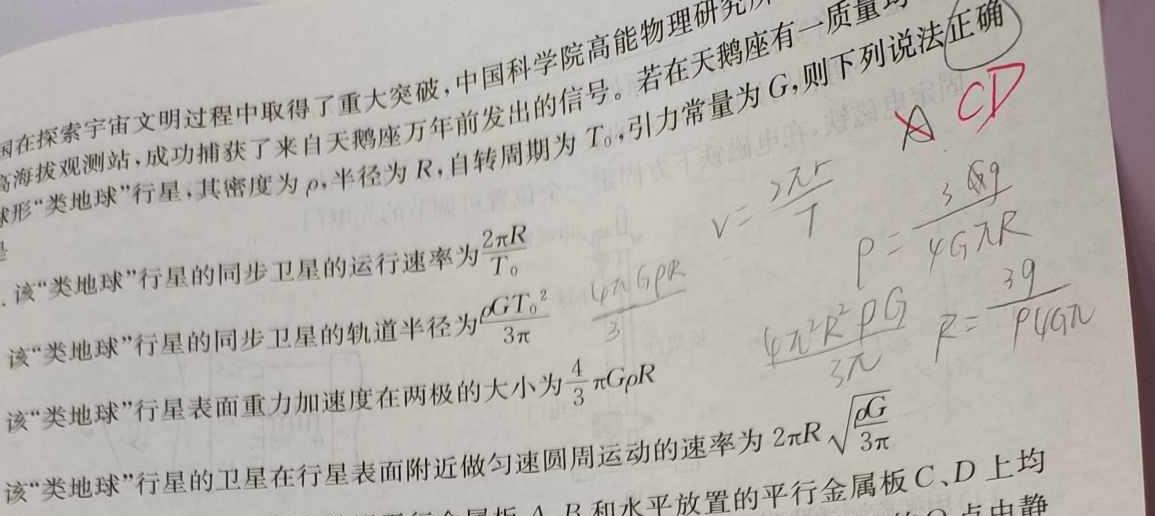 国在探索宇宙文明过程中取得了重大突破,中国科学院高能物理研究所
高海拔观测站,成功捕获了来自天鹅座万年前发出的信号。若在天鹅座有一质量均
球形“类地球”行星,其密度为ρ,半径为R,自转周期为T₀,引力常量为G,则下列说法正确
是
A CD
.该“类地球”行星的同步卫星的运行速率为2πR/T₀
v=2πr/T
ρ=3g/4GπR
该“类地球”行星的同步卫星的轨道半径为ρGT₀²/3π
4πGρR/3
4π²R²ρG/3π
R=3g/ρ4Gπ
该“类地球”行星表面重力加速度在两极的大小为4/3πGρR
该“类地球”行星的卫星在行星表面附近做匀速圆周运动的速率为2πR√(ρG/3π)
金属板A、B和水平放置的平行金属板C、D上均
点由静